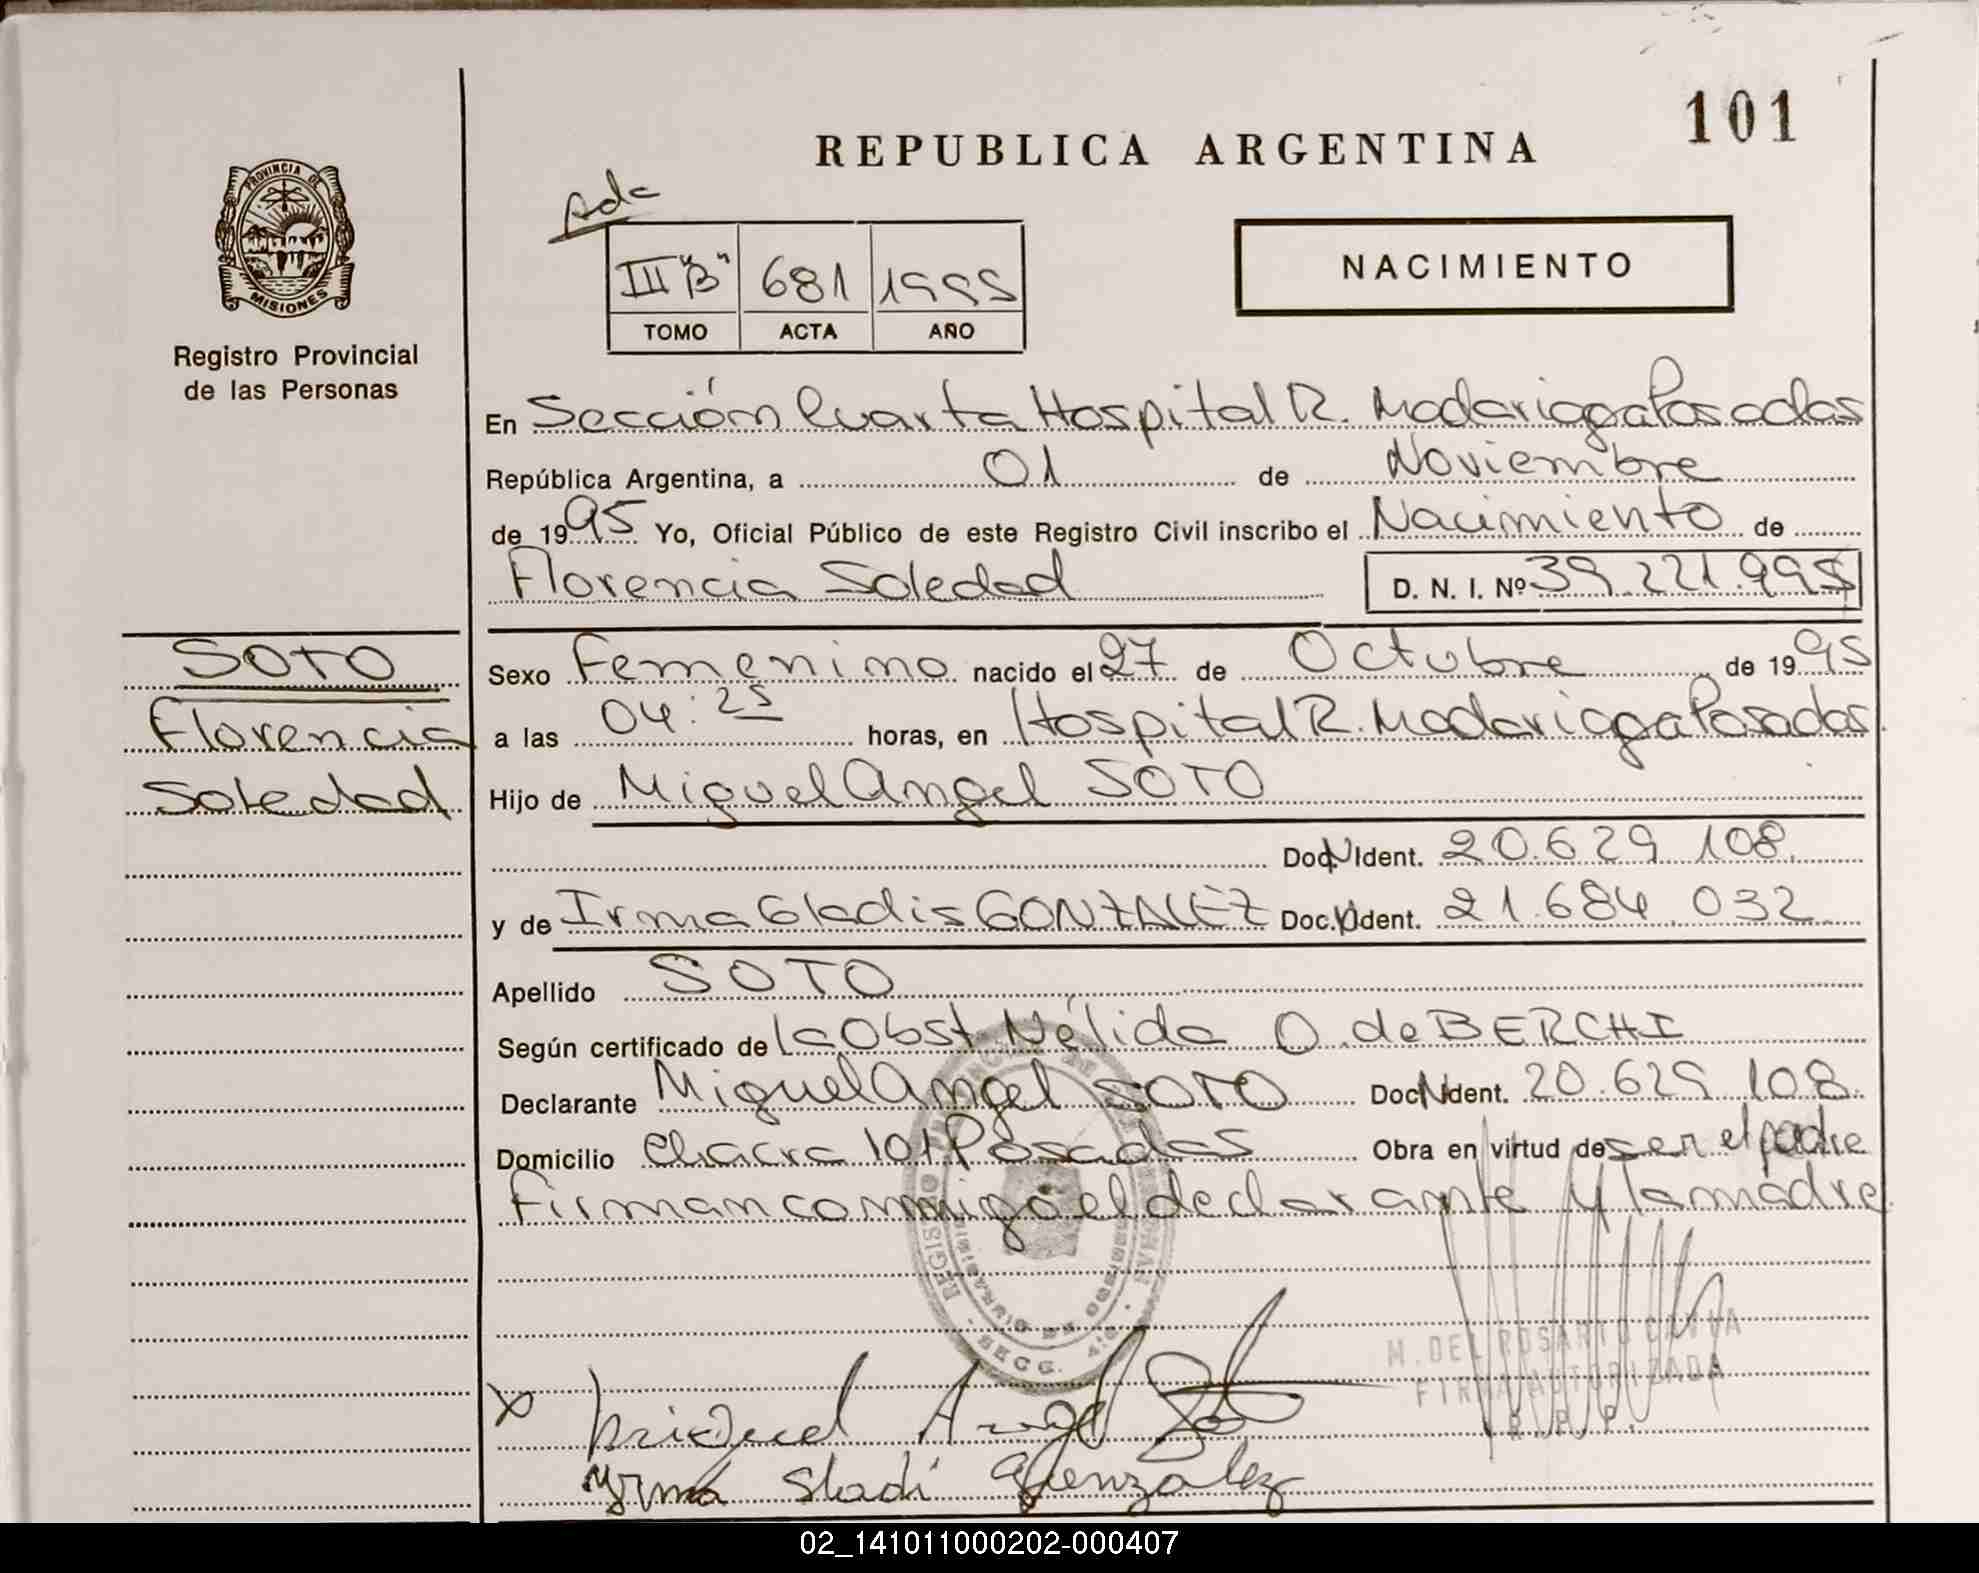 101
REPUBLICA ARGENTINA
PROVINCIA DE
MISIONES
Registro Provincial
de las Personas
Adc
III "B" 681 1995
TOMO ACTA AÑO
NACIMIENTO
En Sección Cuarta Hospital R. Madariaga Posadas
República Argentina, a 01 de Noviembre
de 1995 Yo, Oficial Público de este Registro Civil inscribo el Nacimiento de
Florencia Soledad D. N. I. Nº 39.221.995
SOTO
Florencia
Soledad
Sexo Femenino nacido el 27 de Octubre de 1995
a las 04:25 horas, en Hospital R. Madariaga Posadas.
Hijo de Miguel Angel SOTO
Doc. N Ident. 20.629.108
y de Irma Gladis GONZALEZ Doc. N Ident. 21.684.032
Apellido SOTO
Según certificado de la Obst. Nélida O. de BERCHI
Declarante Miguel Angel SOTO Doc. N Ident. 20.629.108.
Domicilio Chacra 101 Posadas Obra en virtud de ser el padre
Firman conmigo el declarante y la madre
M. DEL ROSARIO CAVIA
FIRMA AUTORIZADA
R. P. P.
x Miguel Angel Soto
Yrma Sladi Gonzalez
02_141011000202-000407